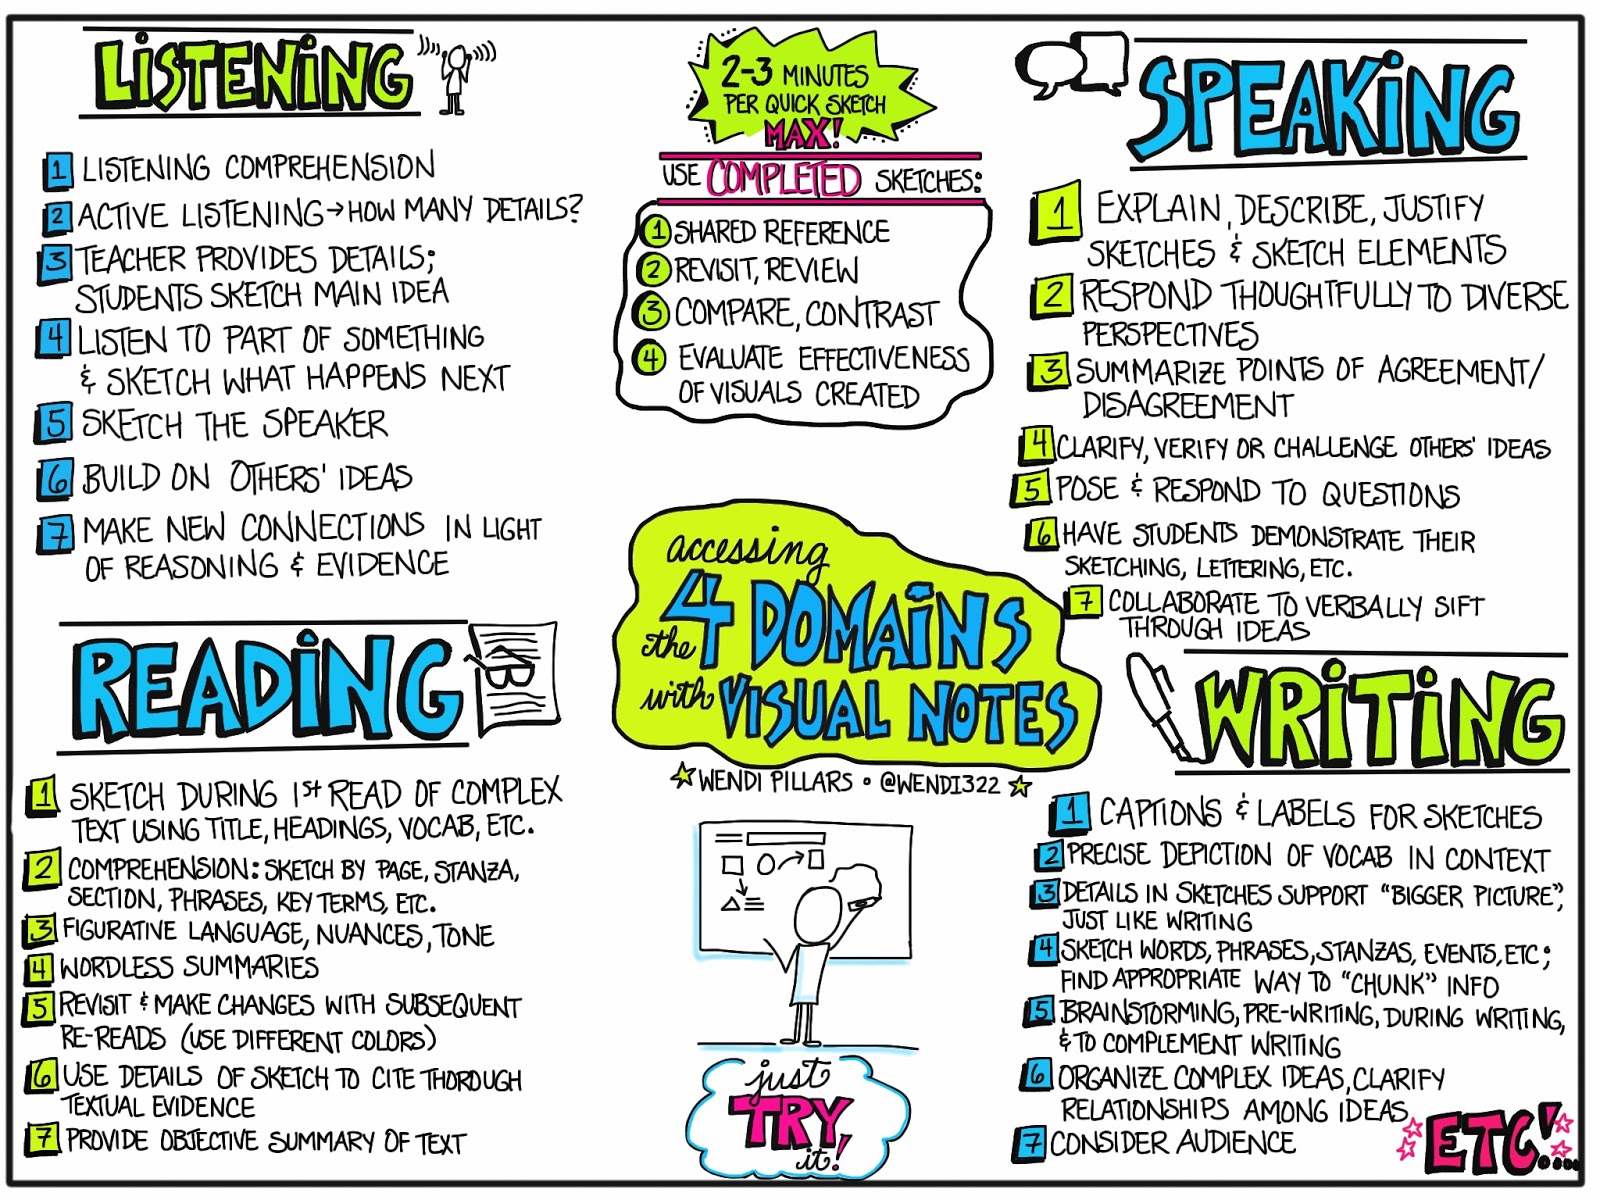 LISTENING
1 LISTENING COMPREHENSION
2 ACTIVE LISTENING → HOW MANY DETAILS?
3 TEACHER PROVIDES DETAILS;
STUDENTS SKETCH MAIN IDEA
4 LISTEN TO PART OF SOMETHING
& SKETCH WHAT HAPPENS NEXT
5 SKETCH THE SPEAKER
6 BUILD ON OTHERS' IDEAS
7 MAKE NEW CONNECTIONS IN LIGHT
OF REASONING & EVIDENCE
2-3 MINUTES
PER QUICK SKETCH
MAX!
USE COMPLETED SKETCHES:
1 SHARED REFERENCE
2 REVISIT, REVIEW
3 COMPARE, CONTRAST
4 EVALUATE EFFECTIVENESS
OF VISUALS CREATED
SPEAKING
1 EXPLAIN, DESCRIBE, JUSTIFY
SKETCHES & SKETCH ELEMENTS
2 RESPOND THOUGHTFULLY TO DIVERSE
PERSPECTIVES
3 SUMMARIZE POINTS OF AGREEMENT/
DISAGREEMENT
4 CLARIFY, VERIFY OR CHALLENGE OTHERS' IDEAS
5 POSE & RESPOND TO QUESTIONS
6 HAVE STUDENTS DEMONSTRATE THEIR
SKETCHING, LETTERING, ETC.
7 COLLABORATE TO VERBALLY SIFT
THROUGH IDEAS
accessing
the 4 DOMAINS
with VISUAL NOTES
WENDI PILLARS • @WENDI322
just
TRY
it!
READING
1 SKETCH DURING 1st READ OF COMPLEX
TEXT USING TITLE, HEADINGS, VOCAB, ETC.
2 COMPREHENSION: SKETCH BY PAGE, STANZA,
SECTION, PHRASES, KEY TERMS, ETC.
3 FIGURATIVE LANGUAGE, NUANCES, TONE
4 WORDLESS SUMMARIES
5 REVISIT & MAKE CHANGES WITH SUBSEQUENT
RE-READS (USE DIFFERENT COLORS)
6 USE DETAILS OF SKETCH TO CITE THOROUGH
TEXTUAL EVIDENCE
7 PROVIDE OBJECTIVE SUMMARY OF TEXT
WRITING
1 CAPTIONS & LABELS FOR SKETCHES
2 PRECISE DEPICTION OF VOCAB IN CONTEXT
3 DETAILS IN SKETCHES SUPPORT "BIGGER PICTURE",
JUST LIKE WRITING
4 SKETCH WORDS, PHRASES, STANZAS, EVENTS, ETC;
FIND APPROPRIATE WAY TO "CHUNK" INFO
5 BRAINSTORMING, PRE-WRITING, DURING WRITING,
& TO COMPLEMENT WRITING
6 ORGANIZE COMPLEX IDEAS, CLARIFY
RELATIONSHIPS AMONG IDEAS
7 CONSIDER AUDIENCE
ETC!....